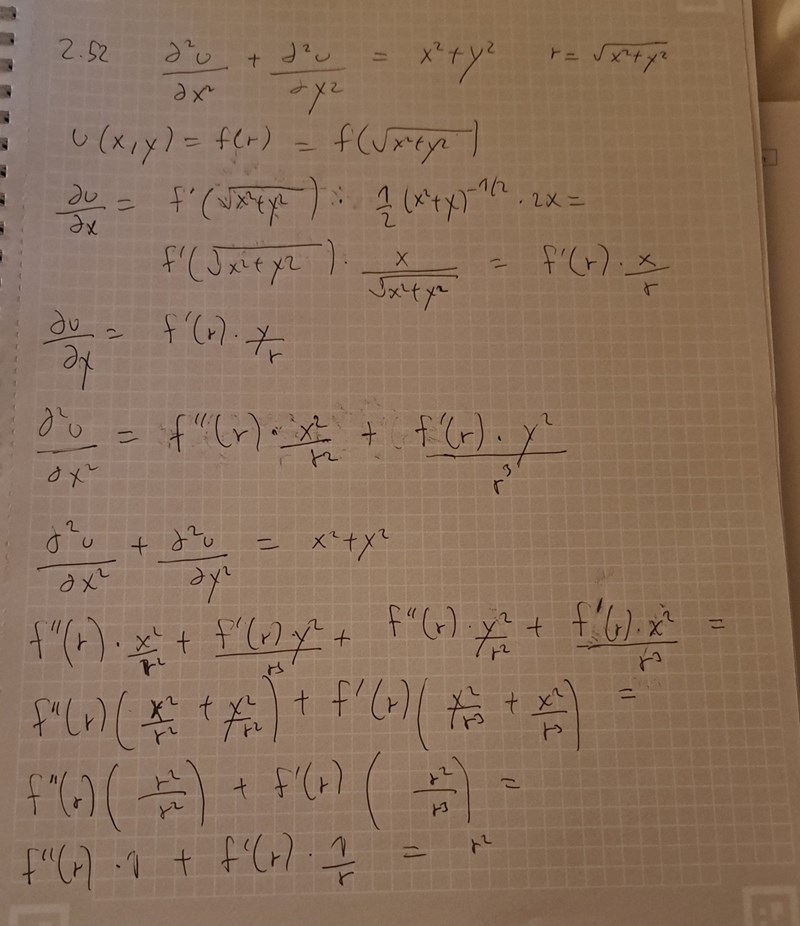 2.52 ∂²u/∂x² + ∂²u/∂y² = x²+y² r = √(x²+y²)
u(x,y) = f(r) = f(√(x²+y²))
∂u/∂x = f'(√(x²+y²)) · 1/2 (x²+y)^(-1/2) · 2x =
f'(√(x²+y²)) · x/√(x²+y²) = f'(r) · x/r
∂u/∂y = f'(r) · y/r
∂²u/∂x² = f''(r) · x²/r² + f'(r) · y²/r³
∂²u/∂x² + ∂²u/∂y² = x²+y²
f''(r) · x²/r² + f'(r) y²/r³ + f''(r) · y²/r² + f'(r) · x²/r³ =
f''(r) (x²/r² + y²/r²) + f'(r) (y²/r³ + x²/r³) =
f''(r) (r²/r²) + f'(r) (r²/r³) =
f''(r) · 1 + f'(r) · 1/r = r²